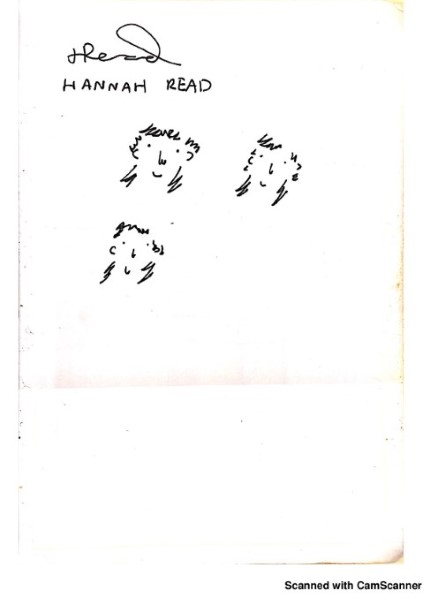 HRead
HANNAH READ
Scanned with CamScanner